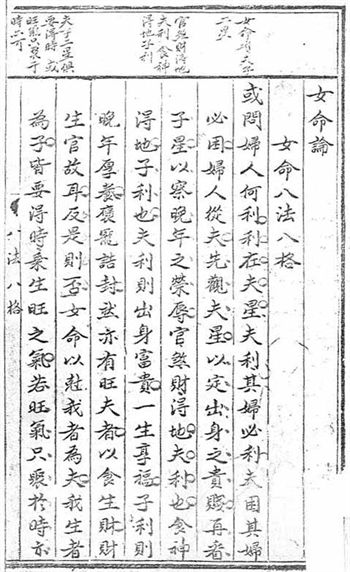 女命看夫子
二星
官煞財得地
夫利食神
得地子利
夫子二星俱
要得時或
旺氣只聚于
時亦可
女命論
女命八法八格
或問婦人何利利在夫星夫利其婦必利夫困其婦
必困婦人從夫先觀夫星以定出身之貴賤再看
子星以察晚年之榮辱官煞財得地夫利也食神
得地子利也夫利則出身富貴一生享福子利則
晚年厚養褒寵誥封然亦有旺夫者以食生財財
生官故耳反是則否女命以尅我者為夫我生者
為子皆要得時乘生旺之氣若旺氣只聚於時亦
八法八格